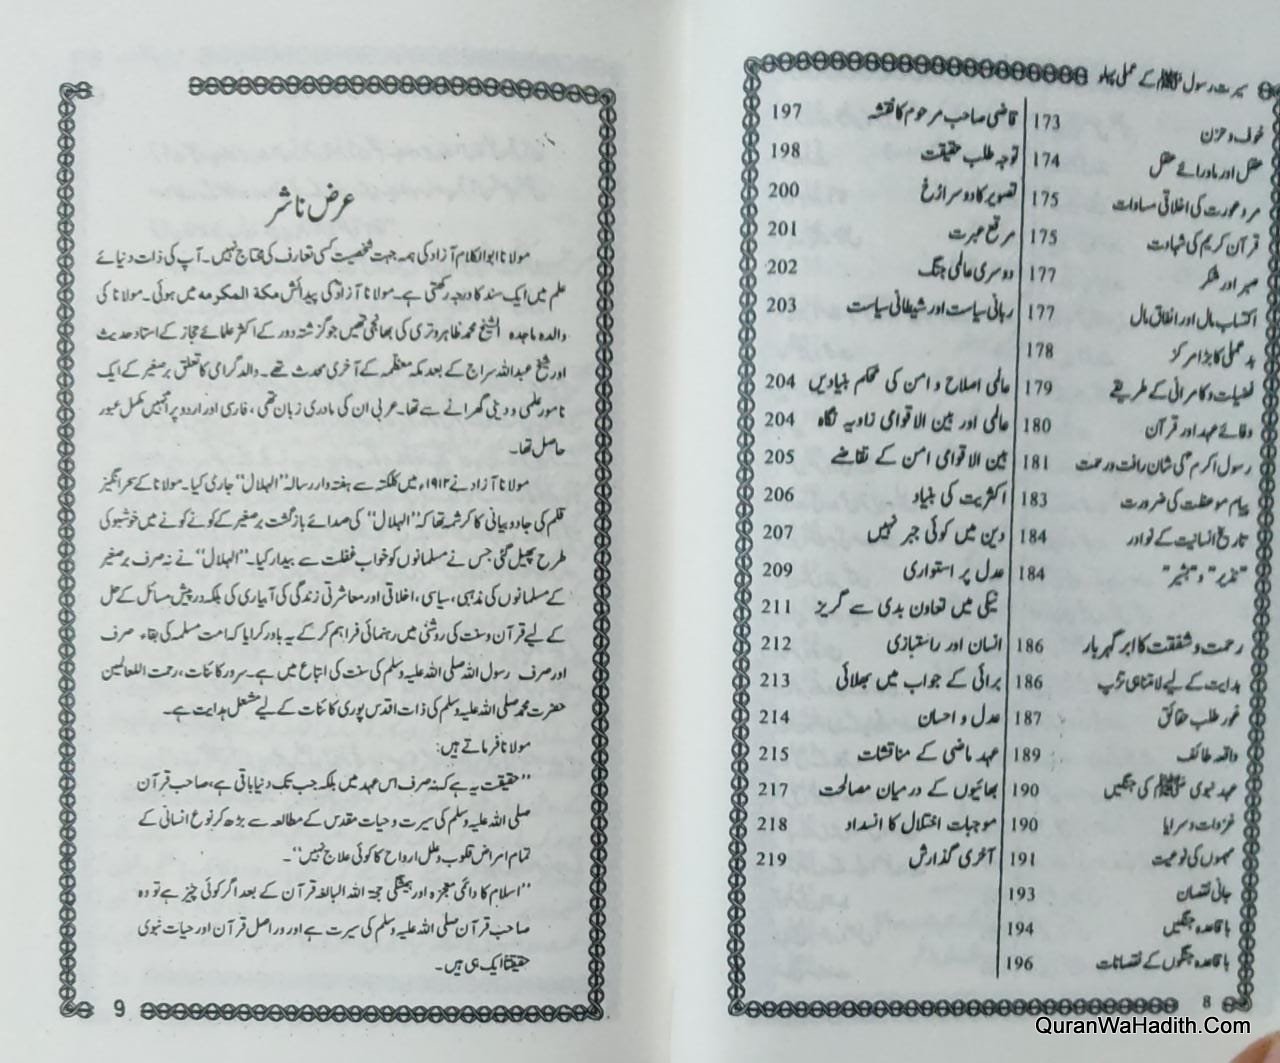 سیرت رسول ﷺ کے عملی پہلو
خوف و حزن 173
عقل اور ماورائے عقل 174
مرد و عورت کی اخلاقی مساوات 175
قرآن کریم کی شہادت 175
صبر اور شکر 177
اکتساب مال اور انفاق مال 177
بد عملی کا بڑا مرکز 178
فضیلت و کامرانی کے طریقے 179
وفائے عہد اور قرآن 180
رسول اکرمؐ کی شان رافت و رحمت 181
پیام موعظت کی ضرورت 183
تاریخ انسانیت کے نوادر 184
"نذیر" و "بشیر" 184
رحمت و شفقت کا ابر گہربار 186
ہدایت کے لیے لامتناہی تڑپ 186
غور طلب حقائق 187
واقعہ طائف 189
عہد نبوی ﷺ کی جنگیں 190
غزوات و سرایا 190
مہموں کی نوعیت 191
جانی نقصان 193
باقاعدہ جنگیں 194
باقاعدہ جنگوں کے نقصانات 196
قاضی صاحب مرحوم کا نقشہ 197
توجہ طلب حقیقت 198
تصویر کا دوسرا رخ 200
مرقع عبرت 201
دوسری عالمی جنگ 202
ربانی سیاست اور شیطانی سیاست 203
عالمی اصلاح و امن کی محکم بنیادیں 204
عالمی اور بین الاقوامی زاویہ نگاہ 204
بین الاقوامی امن کے تقاضے 205
اکثریت کی بنیاد 206
دین میں کوئی جبر نہیں 207
عدل پر استواری 209
نیکی میں تعاون بدی سے گریز 211
انسان اور راستبازی 212
برائی کے جواب میں بھلائی 213
عدل و احسان 214
عہد ماضی کے مناقشات 215
بھائیوں کے درمیان مصالحت 217
موجبات اختلال کا انسداد 218
آخری گذارش 219
8
عرض ناشر
مولانا ابوالکلام آزاد کی ہمہ جہت شخصیت کسی تعارف کی محتاج نہیں۔ آپ کی ذات دنیائے
علم میں ایک سند کا درجہ رکھتی ہے۔ مولانا آزاد کی پیدائش مکة المکرمہ میں ہوئی۔ مولانا کی
والدہ ماجدہ الشیخ محمد طاہر وتری کی بھانجی تھیں جو گزشتہ دور کے اکثر علمائے حجاز کے استاد حدیث
اور شیخ عبداللہ سراج کے بعد مکہ معظمہ کے آخری محدث تھے۔ والد گرامی کا تعلق برصغیر کے ایک
نامور علمی و دینی گھرانے سے تھا۔ عربی ان کی مادری زبان تھی، فارسی اور اردو پر انہیں مکمل عبور
حاصل تھا۔
مولانا آزاد نے ۱۹۱۲ء میں کلکتہ سے ہفتہ وار رسالہ "الہلال" جاری کیا۔ مولانا کے سحر انگیز
قلم کی جادو بیانی کا کرشمہ تھا کہ "الہلال" کی صدائے بازگشت برصغیر کے کونے کونے میں خوشبو کی
طرح پھیل گئی جس نے مسلمانوں کو خواب غفلت سے بیدار کیا۔ "الہلال" نے نہ صرف برصغیر
کے مسلمانوں کی مذہبی، سیاسی، اخلاقی اور معاشرتی زندگی کی آبیاری کی بلکہ درپیش مسائل کے حل
کے لیے قرآن و سنت کی روشنی میں رہنمائی فراہم کر کے یہ باور کرایا کہ امت مسلمہ کی بقاء صرف
اور صرف رسول اللہ صلی اللہ علیہ وسلم کی سنت کی اتباع میں ہے۔ سرور کائنات، رحمت اللعالمین
حضرت محمد صلی اللہ علیہ وسلم کی ذات اقدس پوری کائنات کے لیے مشعل ہدایت ہے۔
مولانا فرماتے ہیں:
"حقیقت یہ ہے کہ نہ صرف اس عہد میں بلکہ جب تک دنیا باقی ہے، صاحب قرآن
صلی اللہ علیہ وسلم کی سیرت و حیات مقدس کے مطالعہ سے بڑھ کر نوع انسانی کے
تمام امراض قلوب و علل ارواح کا کوئی علاج نہیں"۔
"اسلام کا دائمی معجزہ اور ہمیشگی حجۃ اللہ البالغہ قرآن کے بعد اگر کوئی چیز ہے تو وہ
صاحب قرآن صلی اللہ علیہ وسلم کی سیرت ہے اور دراصل قرآن اور حیات نبوی
حقیقتاً ایک ہی ہیں۔
9
QuranWaHadith.Com